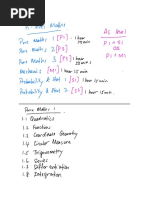 A-Level Maths
AS Level
Pure Maths 1 [P1] - 1 hour
Pure Maths 2 [P2]
P1 + S1
OR
Pure Maths 3 [P3] 1 hour
P1 + M1
Mechanics [M1] 1 hour 15 min
Probability & Stat 1 [S1] 1 hour 15 min
Probability & Stat 2 [S2] 1 hour 15 min.
Pure Maths 1
1.1 Quadratics
1.2 Functions
1.3 Coordinate Geometry
1.4 Circular Measure
1.5 Trigonometry
1.6 Series
1.7 Differentiation
1.8 Integration